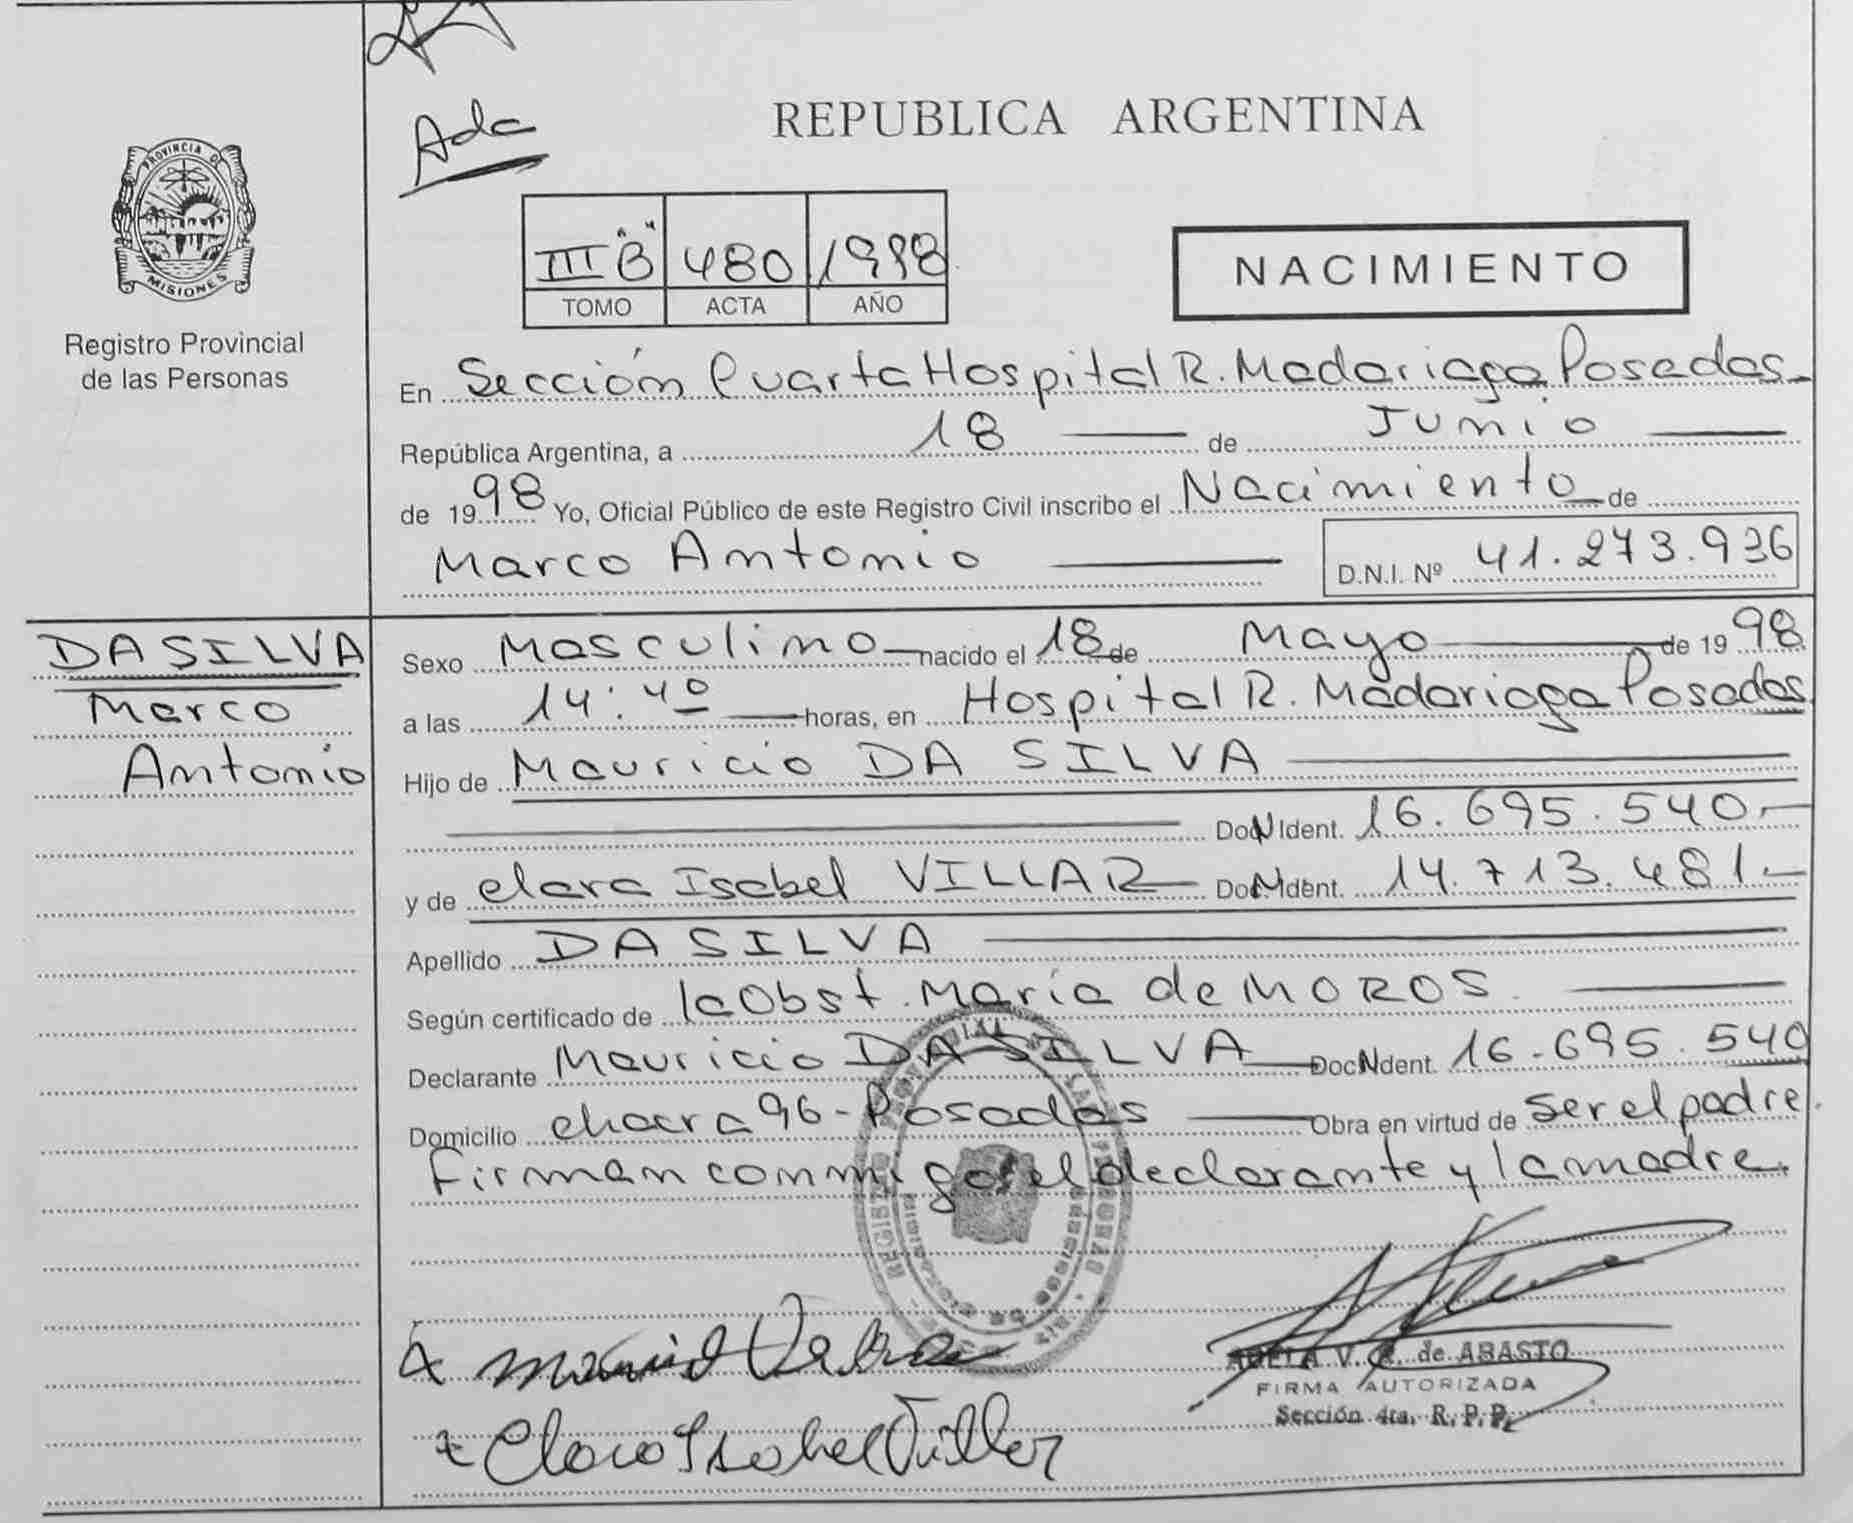 Ada
REPUBLICA ARGENTINA
PROVINCIA DE
MISIONES
Registro Provincial
de las Personas
III "B" 480 1998
TOMO ACTA AÑO
NACIMIENTO
En Sección Cuarta Hospital R. Madariaga Posadas
República Argentina, a 18 de Junio
de 1998 Yo, Oficial Público de este Registro Civil inscribo el Nacimiento de
Marco Antonio D.N.I. Nº 41.273.936
DA SILVA
Marco
Antonio
Sexo Masculino nacido el 18 de Mayo de 1998
a las 14:40 horas, en Hospital R. Madariaga Posadas
Hijo de Mauricio DA SILVA
Doc N Ident. 16.695.540.-
y de Clara Isabel VILLAR Doc N Ident. 14.713.481.-
Apellido DA SILVA
Según certificado de la Obst. María de MOROS.
Declarante Mauricio DA SILVA Doc N Ident. 16.695.540
Domicilio Chacra 96 - Posadas Obra en virtud de ser el padre.
Firman conmigo el declarante y la madre.
Clara Isabel Villar
ADELA V. de ABASTO
FIRMA AUTORIZADA
Sección 4ta. R.P.P.